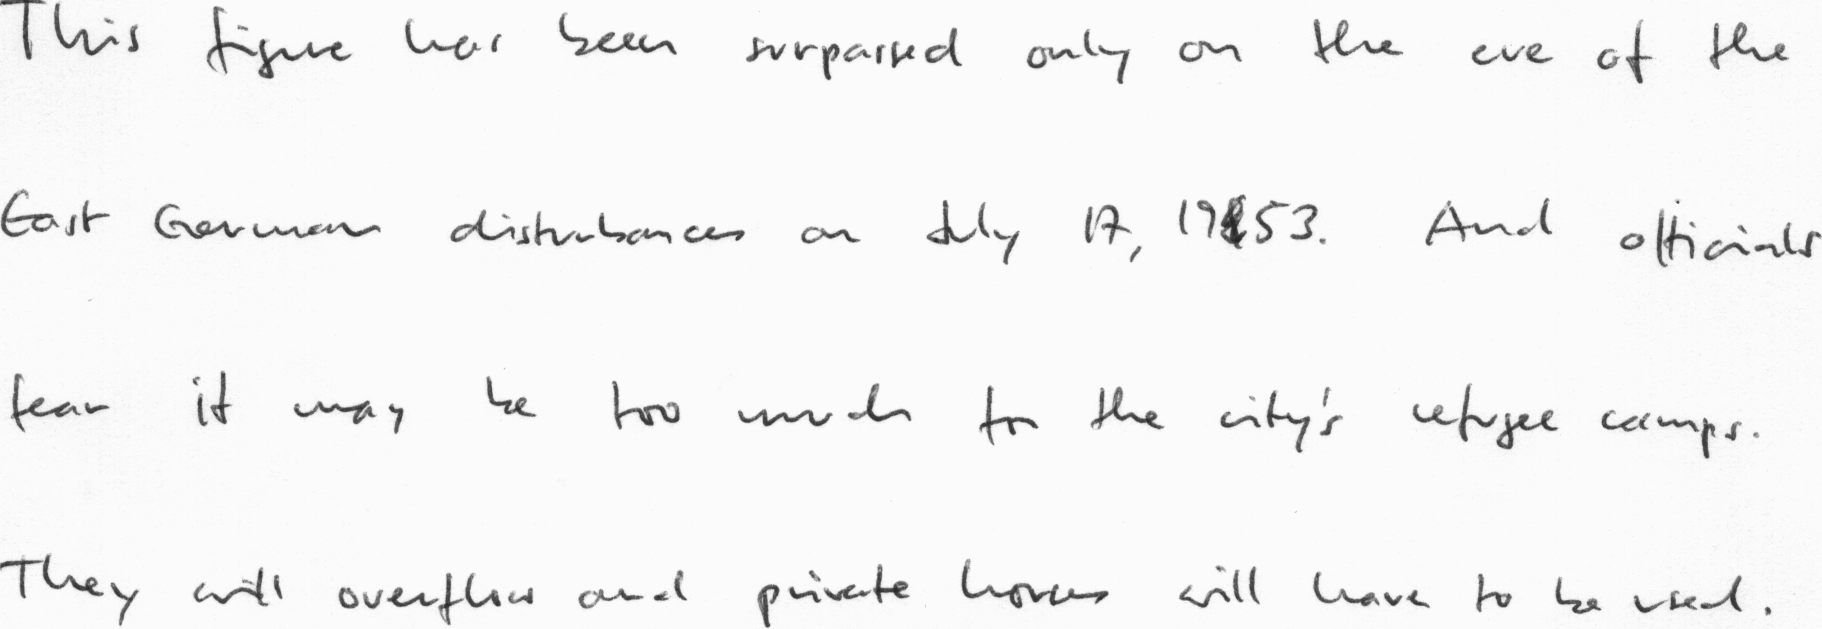 This figure has been surpassed only on the eve of the
East German disturbances on July 17, 1953. And officials
fear it may be too much for the city's refugee camps.
They will overflow and private houses will have to be used.